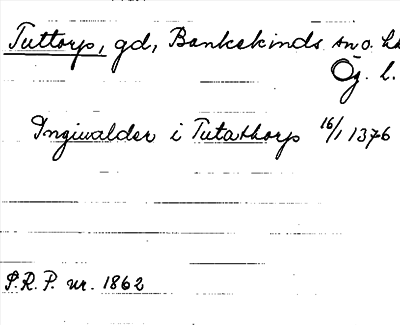 Tuttorp, gd, Bankekinds sn o. hd
Ög. l.
Ingiwalder i Tutathorp 16/1 1376
S.R.P. nr. 1862